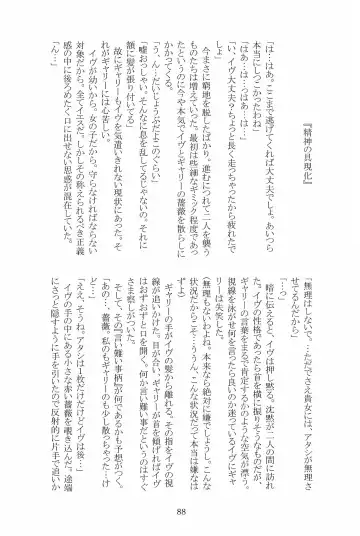 『精神の具現化』
「は…はあ。ここまで逃げてくれば大丈夫でしょ。あいつら
本当にしつこかったわね」
「はあ…は…っはあ…は…」
「い、イヴ大丈夫？ちょっと長く走っちゃったから疲れたで
しょ」
　今まさに窮地を脱したばかり。進むにつれて二人を襲う
ものたちは増えていった。最初は些細なギミック程度であっ
たというのに今や本気でイヴとギャリーの薔薇を散らしに
かかってくる。
「う、ん…だいじょうぶだよこのぐらい」
「嘘おっしゃい。そんなに息を乱してるじゃないの。それに
額に髪が張り付いてる」
　故にギャリーもイヴを気遣いきれない現状にあった。そ
れがギャリーには心苦しい。
　イヴが幼いから。女の子だから。守らなければならない
対象だから。全てイエスだ。しかしその称えられるべき正義
感の中に後ろめたく口に出せない思惑が混在していた。
「ん…」
「無理はしないで。…ただでさえ貴女には、アタシが無理さ
せてるんだから」
「…っ」
　暗に伝えると、イヴは押し黙る。沈黙が二人の間に訪れ
た。イヴの性格であったら首を横に振りそうなものだが、
ギャリーの言葉をまるで肯定するかのような空気が漂う。
視線を泳がせ何を言ったら良いのか迷っているイヴにギャ
リーは失笑した。
（無理もないわよね。本来なら絶対に嫌でしょうし。こんな
状況だからこそ…ううん、こんな状況だって本当は嫌なは
ずよ）
　ギャリーの手がイヴの髪から離れる。その指をイヴの視
線が追いかけた。目が合い、ギャリーが首を傾げればイヴ
はおずおずと口を開く。何か言い難い事だというのはすぐ
さま察しがついた。
　そして、その『言い難い事柄』が何であるかも予想がつく。
「あの…、薔薇。私のもギャリーのも少し散っちゃった…け
ど…」
「ええ、そうね。アタシは１枚だけだけどイヴは後…」
　イヴの手の中にある小さな赤い薔薇を覗き込んだ。途端
にさっと隠すように手を引いたので反射的に片手で追いか
88